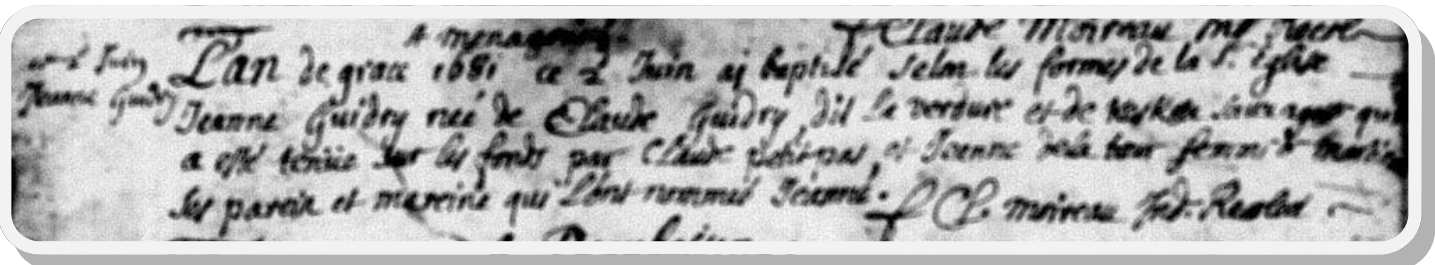 A menagoueche
f Claude Moireau
ce 2 Juin
L'an de grace 1681 ce 2 Juin aj baptisé selon les formes de la Ste Eglise
Jeanne Guidry
Jeanne Guidry née de Claude Guidry dit la verdure et de keskoa sauvagesse qui
a esté tenüe sur les fonds par Claude petitpas, et Jeanne de la tour femme de Martin
ses parein et mareine qui l'ont nommée Jeanne. f Cl. moireau Ind. Recolet